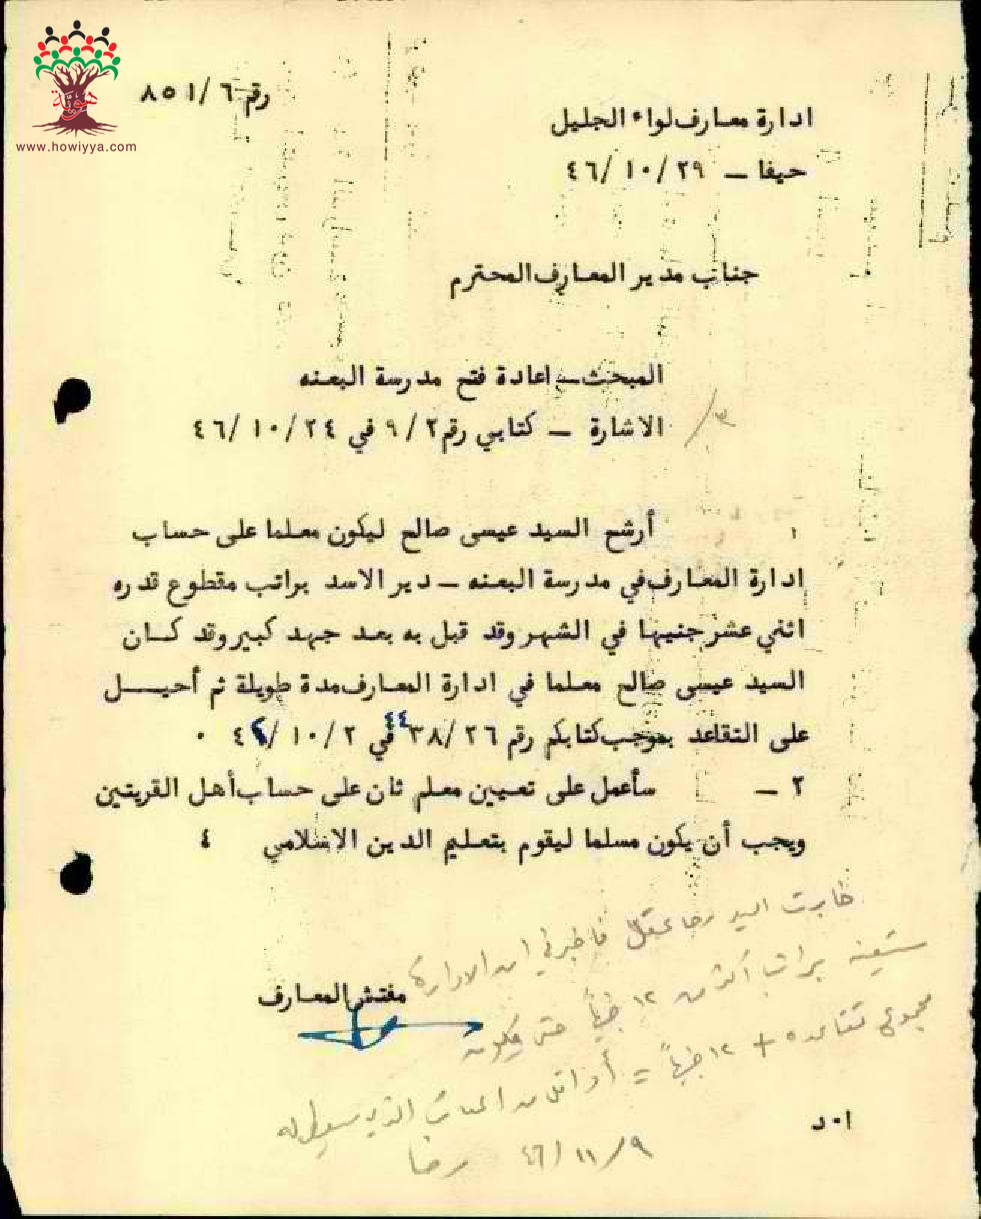 هوية
www.howiyya.com
رقم ٦/ ٨٥١
ادارة معارف لواء الجليل
حيفا – ٢٩/ ١٠/ ٤٦
جناب مدير المعارف المحترم
المبحث – اعادة فتح مدرسة البعنه
الاشارة – كتابي رقم ٩/٢ في ٢٤/ ١٠/ ٤٦
٣/
أرشح السيد عيسى صالح ليكون معلما على حساب
ادارة المعارف في مدرسة البعنه – دير الاسد براتب مقطوع قدره
اثني عشر جنيها في الشهر وقد قبل به بعد جهد كبير وقد كان
السيد عيسى صالح معلما في ادارة المعارف مدة طويلة ثم أحيل
على التقاعد بموجب كتابكم رقم ٢٦/ ٣٨ في ٢/ ١٠/
٢ – سأعمل على تعيين معلم ثان على حساب أهل القريتين
ويجب أن يكون مسلما ليقوم بتعليم الدين الاسلامي ٤
مفتش المعارف
خابرت السيد رضا فاخبرني ان الادارة
براتب أكثر من ١٢ جنيهاً حتى يكون
مجموع تقاعده + ١٢ جنيهاً = أو اقل من الذي
٩/ ١١/ ٤٦ رضا
ا٠د